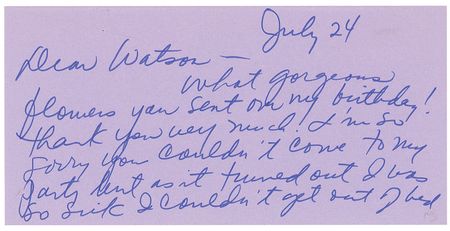 July 24
Dear Watson —
What gorgeous
flowers you sent on my birthday!
Thank you very much. I'm so
sorry you couldn't come to my
party but as it turned out I was
so sick I couldn't get out of bed